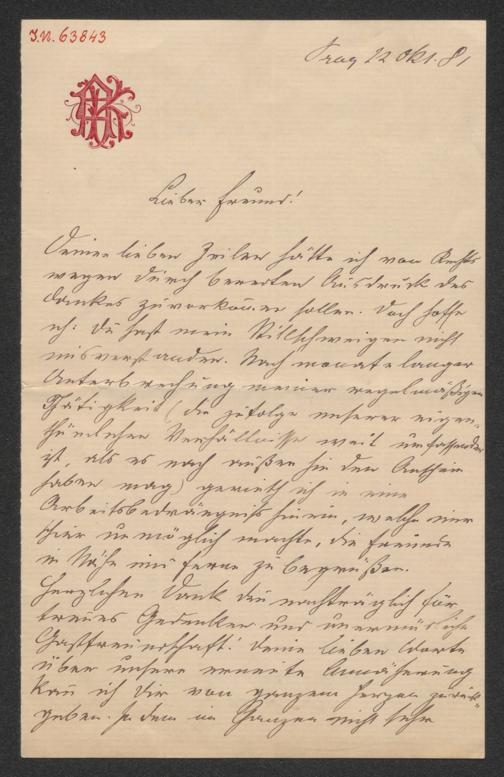 I.N. 63843
Prag 22 Okt. 81
Lieber Freund!
Deinen lieben Zeilen hätte ich von Rechts
wegen durch beredten Ausdruck des
Dankes zuvorkom̄en sollen. Doch hoffe
ich: Du hast mein Stillschweigen nicht
misverstanden. Nach monatelanger
Unterbrechung meiner regelmäßigen
Thätigkeit (die zufolge unserer eigen-
thümlichen Verhältnisse weit umfassender
ist, als es nach außen hin den Anschein
haben mag) gerieth ich in eine
Arbeitsbedrängniß hinein, welche mir
schier unmöglich machte, die Freunde
in Nähe und Ferne zu begrüßen.
Herzlichen Dank Dir nachträglich für
treues Gedenken und unermüdliche
Gastfreundschaft! Deine lieben Worte
über unsere erneute Annäherung
kan̄ ich Dir von ganzem Herzen zurück-
geben. In dem im Ganzen nicht sehr